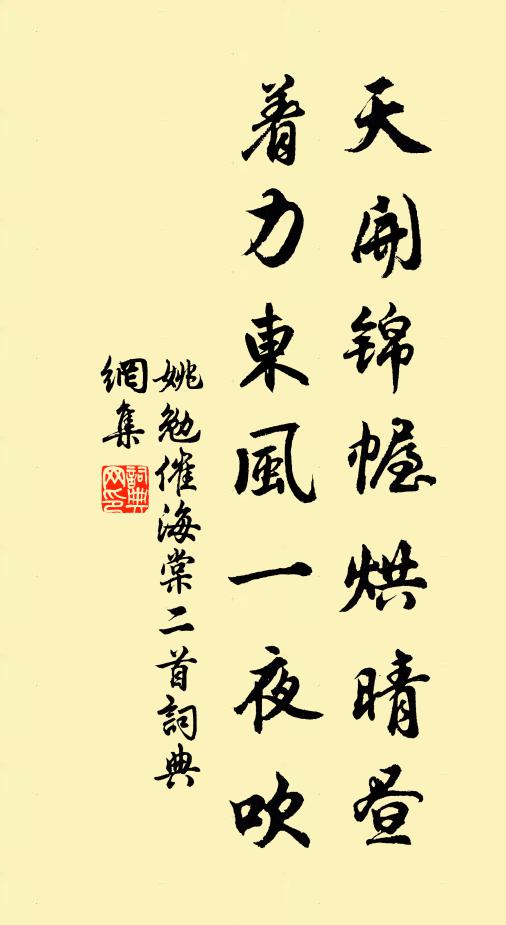 天開錦幄烘晴昼
着力東風一夜吹
姚勉催海棠二首詞典
網集
詞典
网印